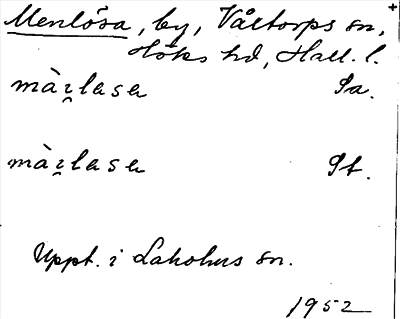 Menlösa, by, Våxtorps sn,
Höks hd, Hall. l.
Sa.
St.
Uppt. i Laholms sn.
1952